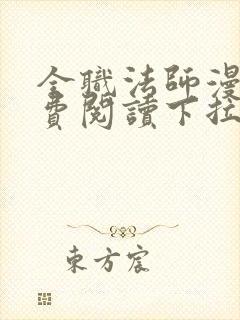 全職法師漫
費閱讀下拉
東方宸